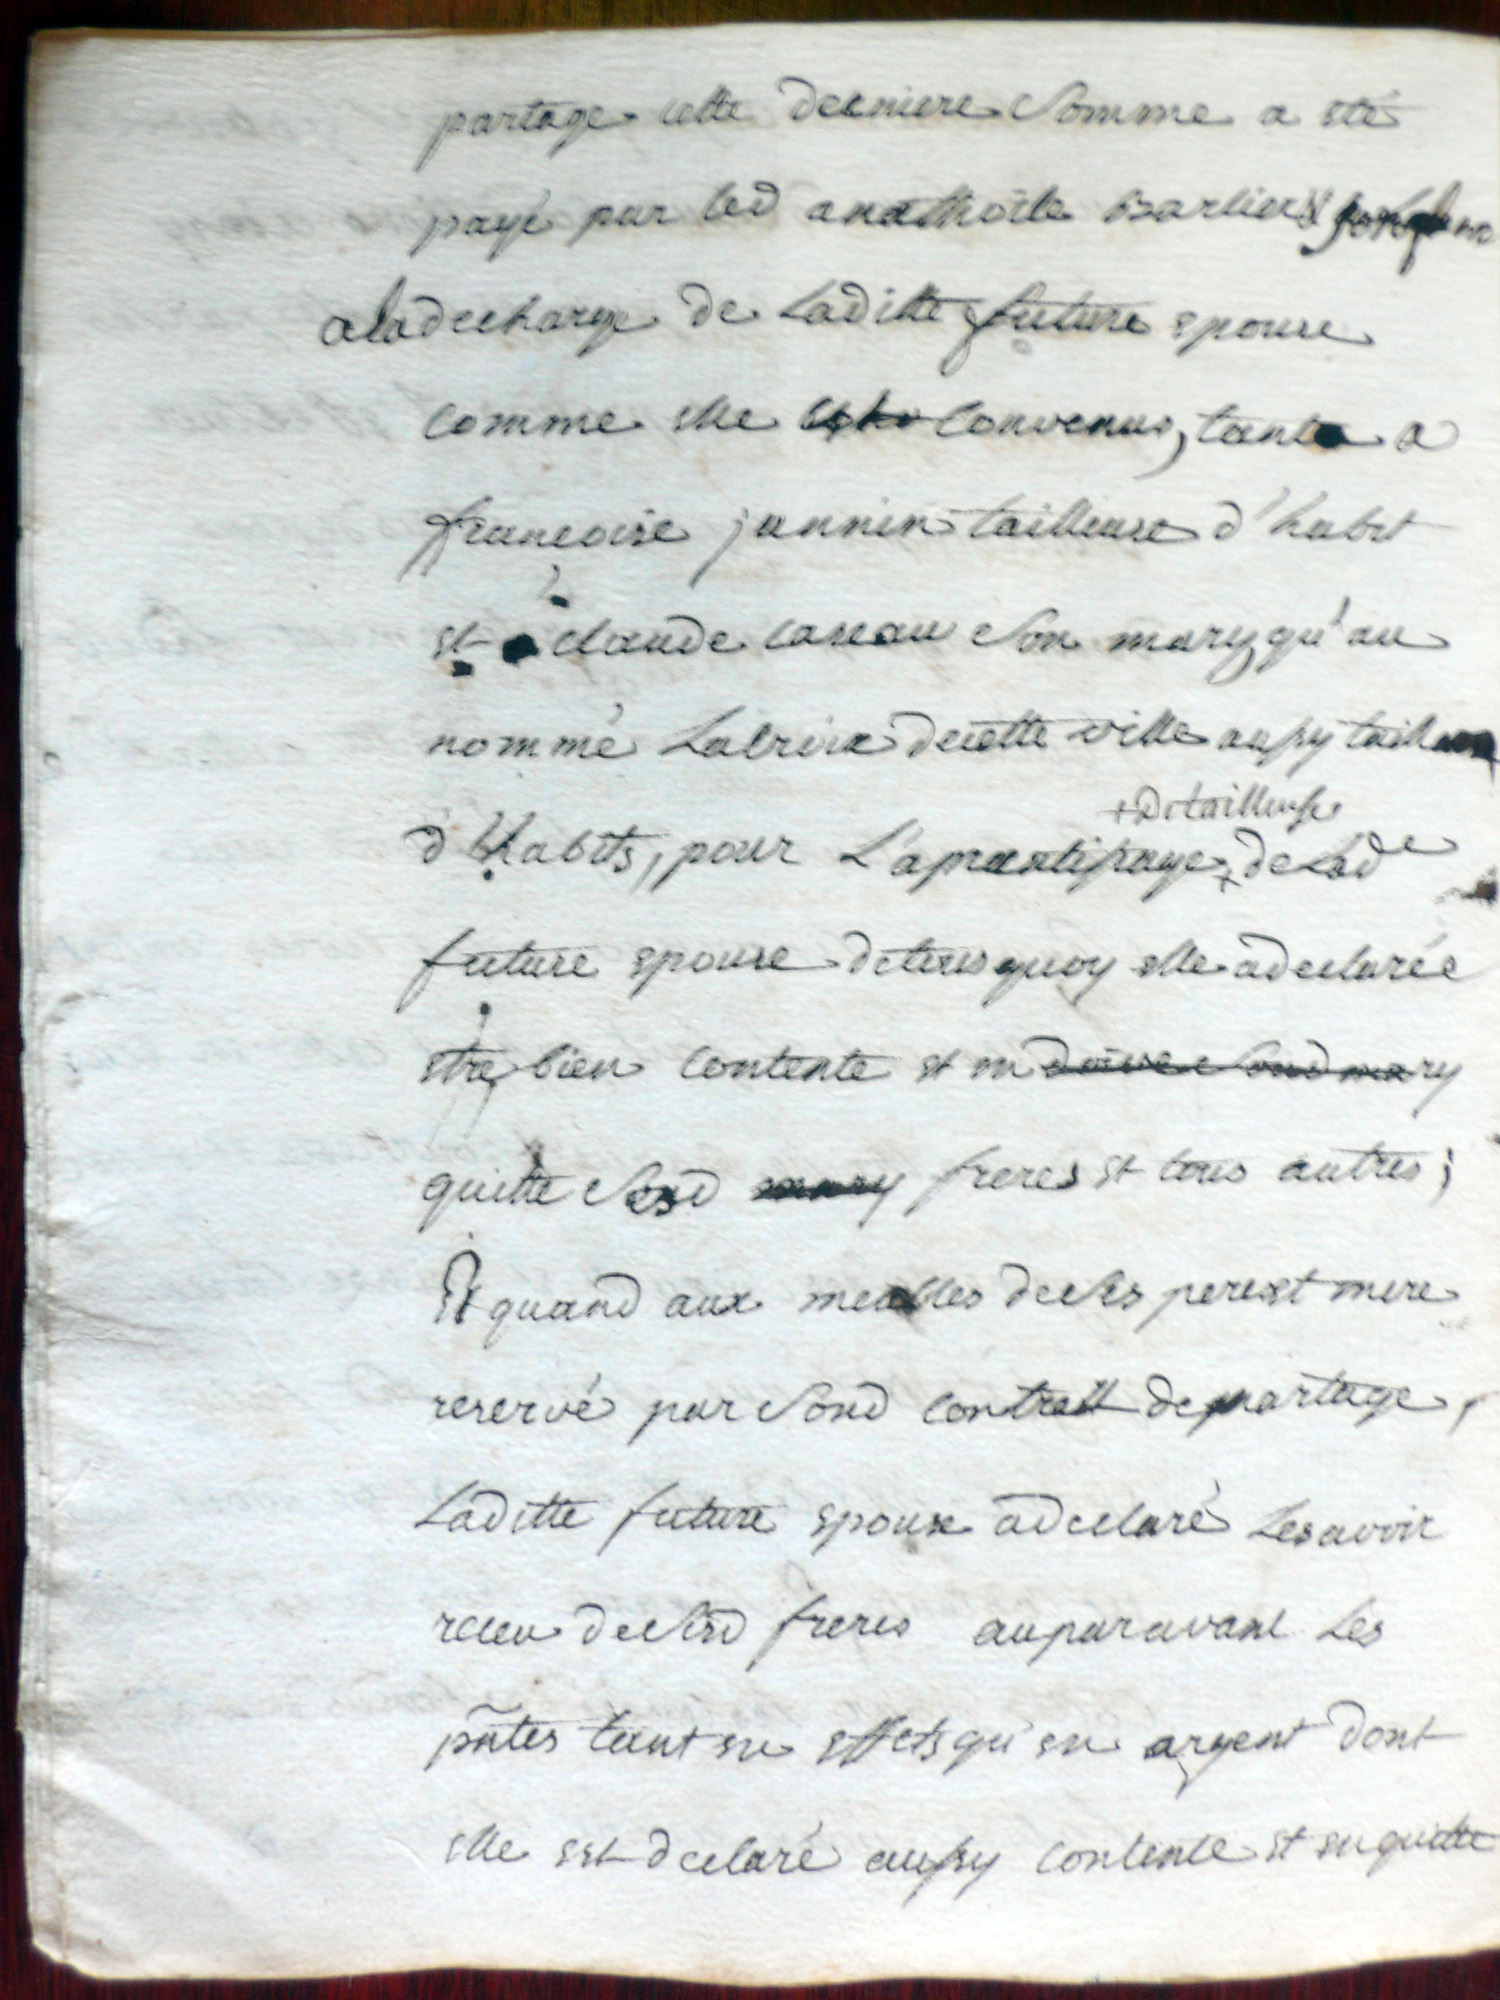 partage cette derniere Somme a sté
payé par led anathoile Barlier
aladecharge de Laditte future spouse
comme elle convenus, tant a
francoise jannin tailleuse d'habit
st a claude careau Son mary qu'au
nommé Lacroix decette ville aussy
+ Detailleuse
d'habits, pour L'aprantissage + de Lad.de
future spouse detous quoy elle adeclarée
stre bien contente st en doivee Soud mary
quitte Sesd mary freres st tous autres;
Et quand aux meubles deses perest mere
reservé par Soud contratt de partage,
Laditte future spouse adeclaré Lesavoir
receu deSesd freres auparavant Les
pñtes tant en effets qu'en argent dont
elle est declaré aussy contente st en quitte